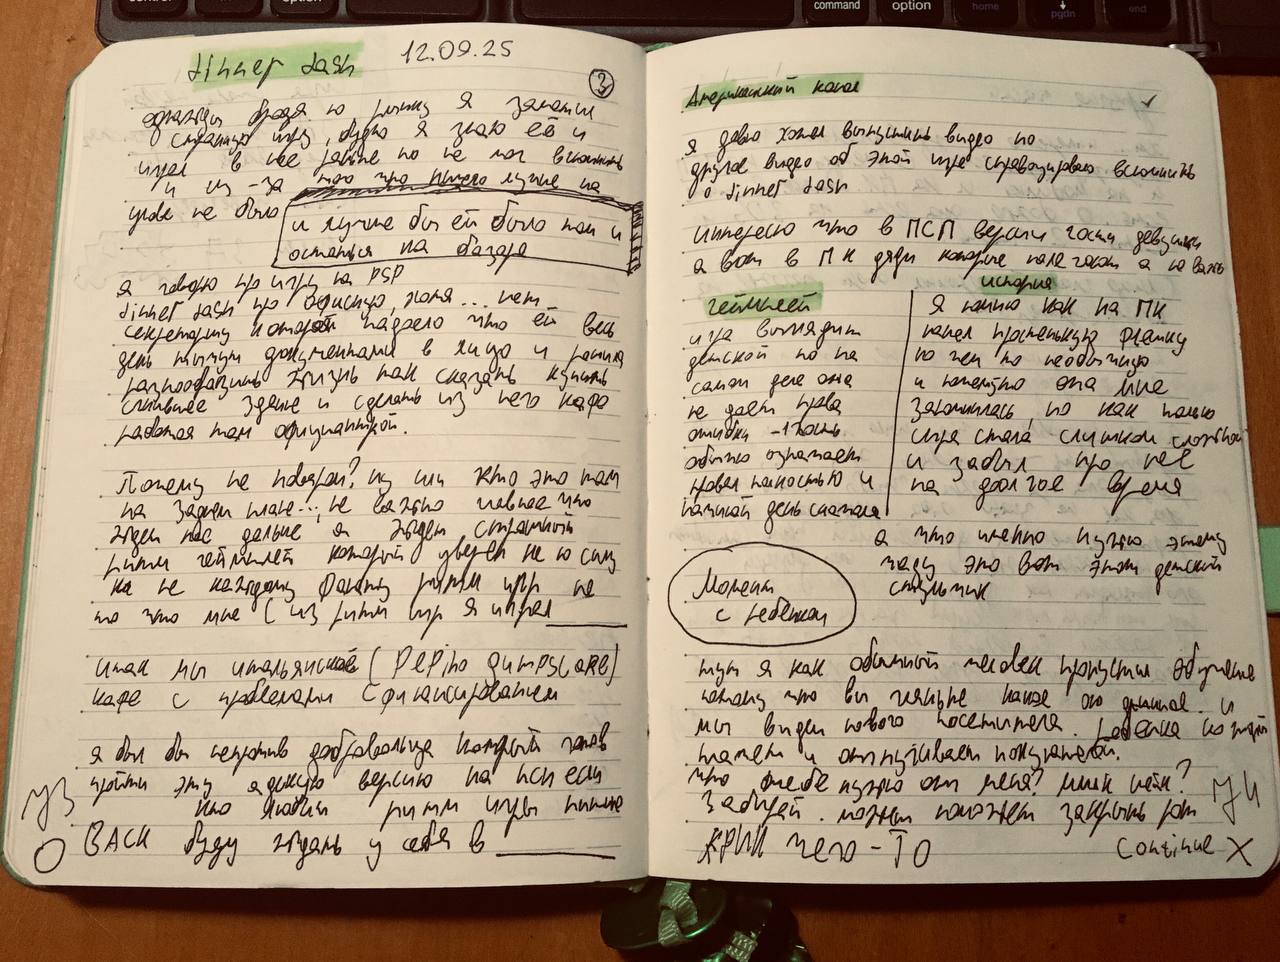 control
option
command
option
home
pgdn
end
dinner dash 12.09.25
3
однажды бродя по рынку я заметил
странную игру, будто я знаю её и
играл в неё раньше но не мог вспомнить
и из-за того что ничего лучше на
было не было
и лучше бы ей было там и
остаться на базаре
я говорю про игру на PSP
dinner dash про офисную, хотя... нет
секретаршу которой надоело что ей весь
день тычут документами в лицо и решила
разнообразить жизнь так сказать купить
здание и сделать из него кафе
работая там официанткой.
Почему не поваром? ну или кто это там
на заднем плане..., не важно главное что
ждёт нас дальше а ждёт странный
ритм геймплей который уверен не по силу
не каждому фанату ритм игр не
то что мне (из ритм игр я играл
итак мы итальянское (Pepino Jumpscare)
кафе с проблемами с финансированием
я был бы непротив добровольца который готов
пройти эту адскую версию на псп если
кто любит ритм игры пишите
BACK буду ждать у себя в
Американский канал
я давно хотел выпустить видео но
другое видео об этой игре спровоцировало вспомнить
о dinner dash
интересно что в ПСП версии гости девушки
а вот в ПК дяди которые а не важно
геймплей
игра выглядит
детской но на
самом деле она
не даёт права
ошибки -1 гость
обычно означает
провал полностью и
начинай день сначала
история
Я помню как на ПК
нашел простенькую флешку
но чем то необычную
и конечно она мне
запомнилась, но как только
игра стала слишком сложной
и забыл про неё
на долгое время
а что именно нужно этому
чаду это вот этот детский
стульчик
Момент
с ребёнком
тут я как обычный человек пропустил обучение
потому что вы гляньте какое оно длинное. и
мы видим нового посетителя. ребёнка который
плачет и отпугивает покупателей.
что тебе нужно от меня?
Забирай. может поможет закрыть рот
КРИК чего-то Continue X